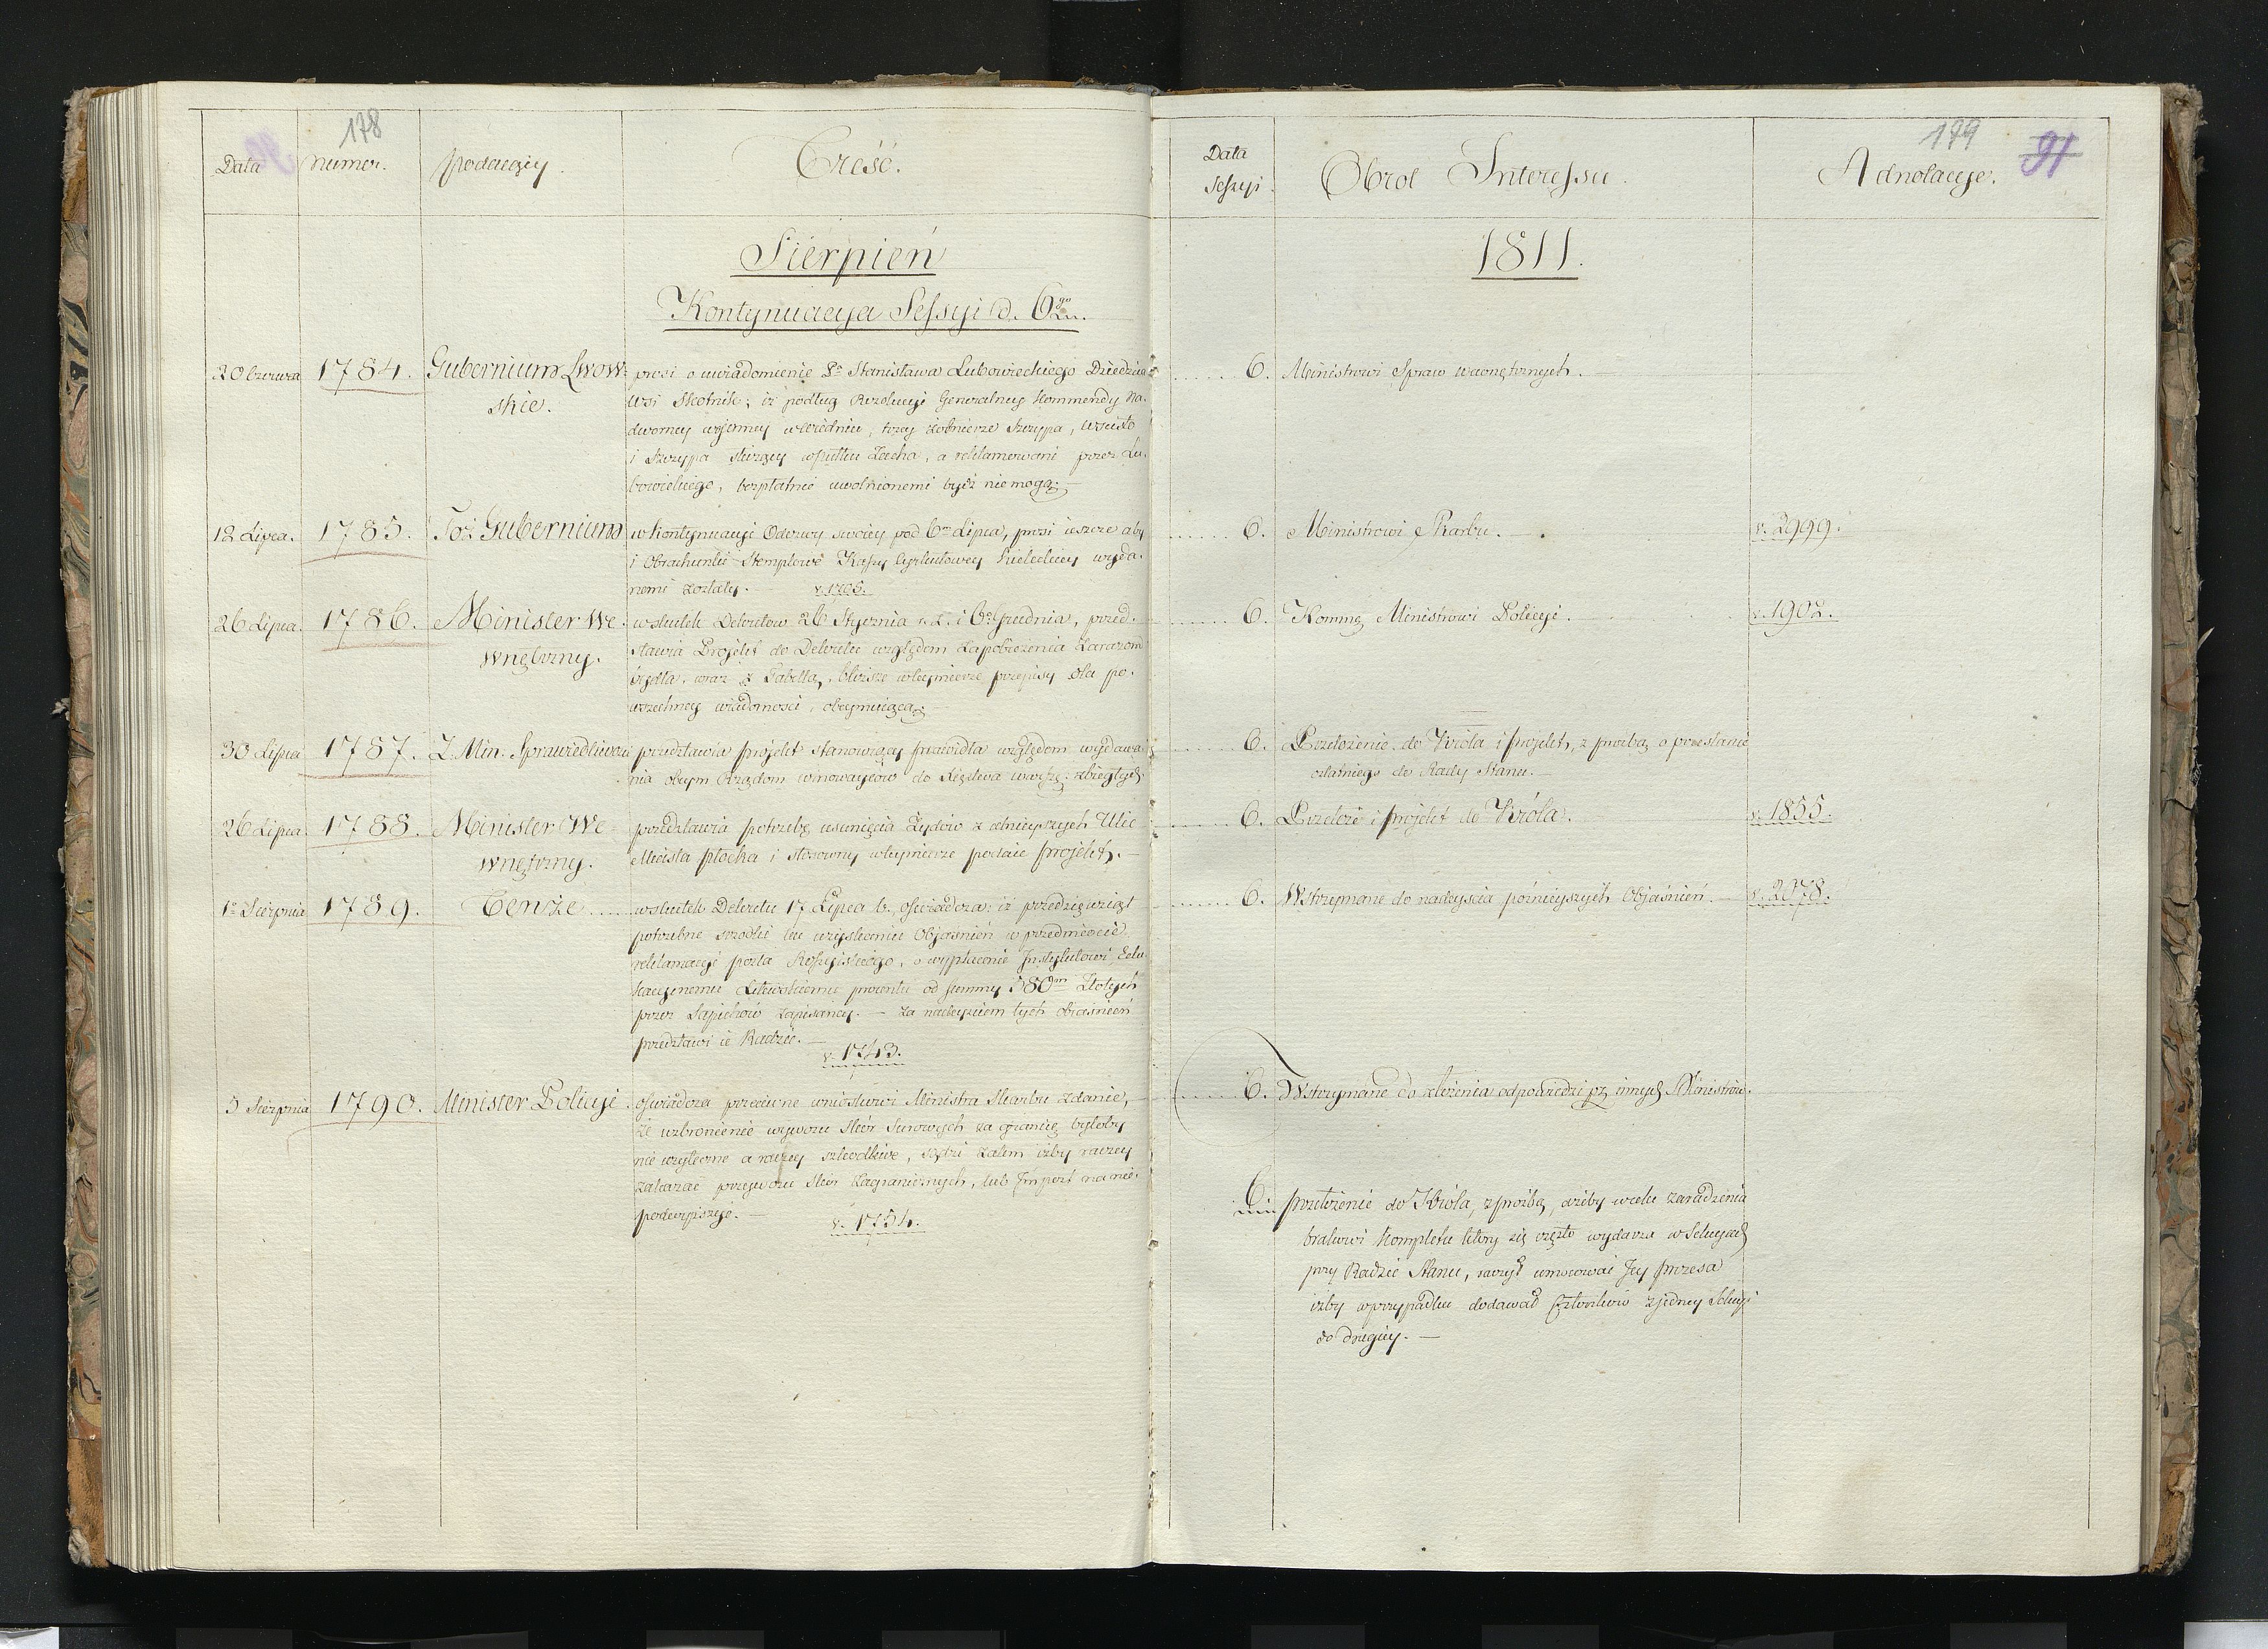 178
Data
Numer.
Podaiący.
Treść.
Sierpień
Kontynuacya Sessyi d. 6go
20 Czerwca 1784. Gubernium Lwow-
skie.
prosi o uwiadomienie Po Stanisława Lubowieckiego Dziedzica
Wsi Skotnik; iż podług Rezolucyi Generalney Kommendy Na-
dworney woienney w Wiedniu, trzey żołnierze Szczypa,
i Szczypa służący w Pułku Zacha, a reklamowani przez Lu-
bowieckiego, bezpłatnie uwolnionemi bydź nie mogą.—
12 Lipca. 1785. Toż Gubernium
w kontynuacyi Odezwy swoiey pod 6m Lipca, prosi ieszcze aby
i Obrachunki Stemplowe Kassy Cyrkułowey Kieleckiey wyda-
nemi zostały.— v. 1705.
26 Lipca. 1786. Minister We-
wnętrzny.
w skutek Dekretow 26 Stycznia r. z. i 6o Grudnia, przed-
stawia Projekt do Dekretu względem zapobieżenia zarazom
bydła, wraz z Tabellą, bliższe w tey mierze przepisy dla po-
wszechney wiadomości, obeymuiącą.—
30 Lipca 1787. Z. Min. Sprawiedliwości
przedstawia projekt stanowiący prawidła względem wydawa-
nia obcym Rządom winowayców do Xięstwa Warsz: zbiegłych
26 Lipca 1788. Minister We-
wnętrzny.
przedstawia potrzebę usunięcia Żydów z celnieyszych Ulic
Miasta Płocka i stosowny w tey mierze podaie projekt.—
1o Sierpnia 1789. Tenże
w skutek Dekretu 17 Lipca b.r. oświadcza: iż przedsięwziął
potrzebne srzodki ku uzyskaniu Objasnień w przedmiocie
reklamacyi posła Rossyiskiego, o wypłacenie Instytutowi Edu-
kacyinemu Litewskiemu procentu od summy 380m Złotych
przez Sapiehów zapisaney.— Za nadeyściem tych obiaśnień
przedstawi ie Radzie.—
v. 1743.
5 Sierpnia 1790. Minister Policyi
oświadcza przeciwne wnioskowi Ministra Skarbu zdanie,
że wzbronienie wywozu Skór surowych za granicę byłoby
nie użyteczne a raczey szkodliwe, sądzi zatem iżby raczey
zakazać przywozu Skór Zagranicznych, lub Impost na nie
podwyższyć.—
v. 1754.
179
91
Data
Sessyi
Obrot Interessu.
Adnotacye.
1811.
6. Ministrowi Spraw wewnętrznych.
6. Ministrowi Skarbu.— v. 2999.
6. Kommę Ministrowi Policyi. v. 1902.
6. Przełożenie do Króla i projekt, z prośbą o przesłanie
ostatniego do Rady Stanu.—
6. Przełoż: i projekt do Króla. v. 1855.
6. Wstrzymane do nadeyscia póznieyszych Objaśnień.— v. 2078.
6. Wstrzymane do złożenia odpowiedzi pz innych Ministrów.
6. przełożenie do Króla, z prośbą, ażeby w celu zaradzenia
brakowi Kompletu który się często wydarza w Sekcyach
przy Radzie Stanu, raczył umocować Jey prezesa
iżby w przypadku dodawał Członków z jedney Sekcyi
do drugiey.—